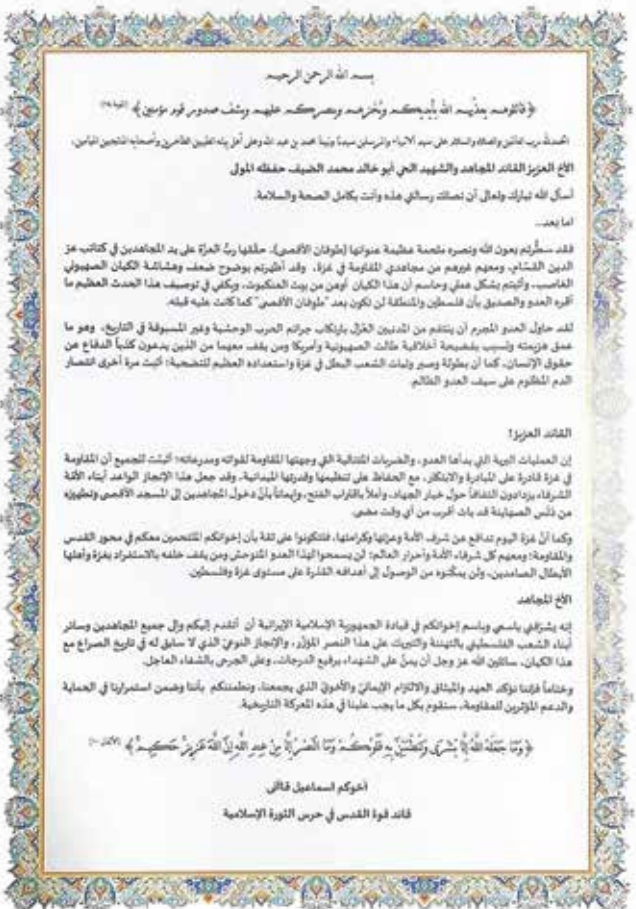 بسم الله الرحمن الرحيم
﴿ قاتلوهم يعذبهم الله بأيديكم ويخزهم وينصركم عليهم ويشف صدور قوم مؤمنين ﴾
الحمد لله رب العالمين والصلاة والسلام على سيد الأنبياء والمرسلين سيدنا ونبينا محمد بن عبد الله وعلى أهل بيته الطيبين الطاهرين وأصحابه المنتجبين الميامين.
الأخ العزيز القائد المجاهد والشهيد الحي أبو خالد محمد الضيف حفظه المولى
أسأل الله تبارك وتعالى أن تصلك رسالتي هذه وأنت بكامل الصحة والسلامة.
اما بعد...
فقد سطّرتم بعون الله ونصره ملحمة عظيمة عنوانها (طوفان الأقصى)، حقّقها ربُّ العزّة على يد المجاهدين في كتائب عز
الدين القسّام، ومعهم غيرهم من مجاهدي المقاومة في غزة، وقد أظهرتم بوضوح ضعف وهشاشة الكيان الصهيوني
الغاصب، وأثبتم بشكل عملي وحاسم أن هذا الكيان أوهن من بيت العنكبوت، ويكفي في توصيف هذا الحدث العظيم ما
أقره العدو والصديق بأن فلسطين والمنطقة لن تكون بعد "طوفان الأقصى" كما كانت عليه قبله.
لقد حاول العدو المجرم أن ينتقم من المدنيين العُزّل بارتكاب جرائم الحرب الوحشية وغير المسبوقة في التاريخ، وهو ما
عمق هزيمته وتسبب بفضيحة أخلاقية طالت الصهيونية وأمريكا ومن يقف معهما من الذين يدعون كذباً الدفاع عن
حقوق الإنسان، كما أن بطولة وصبر وثبات الشعب البطل في غزة واستعداده العظيم للتضحية؛ أثبت مرة أخرى انتصار
الدم المظلوم على سيف العدو الظالم.
القائد العزيز!
إن العمليات البرية التي بدأها العدو، والضربات المتتالية التي وجهتها المقاومة لقواته ومدرعاته؛ أثبتت للجميع أن المقاومة
في غزة قادرة على المبادرة والابتكار، مع الحفاظ على تنظيمها وقدرتها الميدانية، وقد جعل هذا الإنجاز الواعد أبناء الأمّة
الشرفاء يزدادون التفافاً حول خيار الجهاد، وأملاً باقتراب الفتح، وإيماناً بأنّ دخول المجاهدين إلى المسجد الأقصى وتطهيره
من دنَس الصهاينة قد بات أقرب من أي وقت مضى.
وكما أنّ غزة اليوم تدافع عن شرف الأمة وعزتها وكرامتها، فلتكونوا على ثقة بأن إخوانكم الملتحمين معكم في محور القدس
والمقاومة؛ ومعهم كل شرفاء الأمة وأحرار العالم؛ لن يسمحوا لهذا العدو المتوحش ومن يقف خلفه بالاستفراد بغزة وأهلها
الأبطال الصامدين، ولن يمكّنوه من الوصول إلى أهدافه القذرة على مستوى غزة وفلسطين.
الأخ المجاهد
إنه يشرّفني باسمي وباسم إخوانكم في قيادة الجمهورية الإسلامية الإيرانية أن أتقدم إليكم وإلى جميع المجاهدين وسائر
أبناء الشعب الفلسطيني بالتهنئة والتبريك على هذا النصر المؤزّر، والإنجاز النوعيّ الذي لا سابق له في تاريخ الصراع مع
هذا الكيان، سائلين الله عز وجل أن يمنّ على الشهداء برفيع الدرجات، وعلى الجرحى بالشفاء العاجل.
وختاماً فإننا نؤكد العهد والميثاق والالتزام الإيمانيّ والأخويّ الذي يجمعنا، ونطمئنكم بأننا وضمن استمرارنا في الحماية
والدعم المؤثرين للمقاومة، سنقوم بكل ما يجب علينا في هذه المعركة التاريخية.
﴿ وَمَا جَعَلَهُ اللهُ إِلَّا بُشْرَى وَلِتَطْمَئِنَّ بِهِ قُلُوبُكُمْ وَمَا النَّصْرُ إِلَّا مِنْ عِندِ اللهِ إِنَّ اللهَ عَزِيزٌ حَكِيمٌ ﴾ (الأنفال ١٠)
أخوكم اسماعيل قاآني
قائد قوة القدس في حرس الثورة الإسلامية